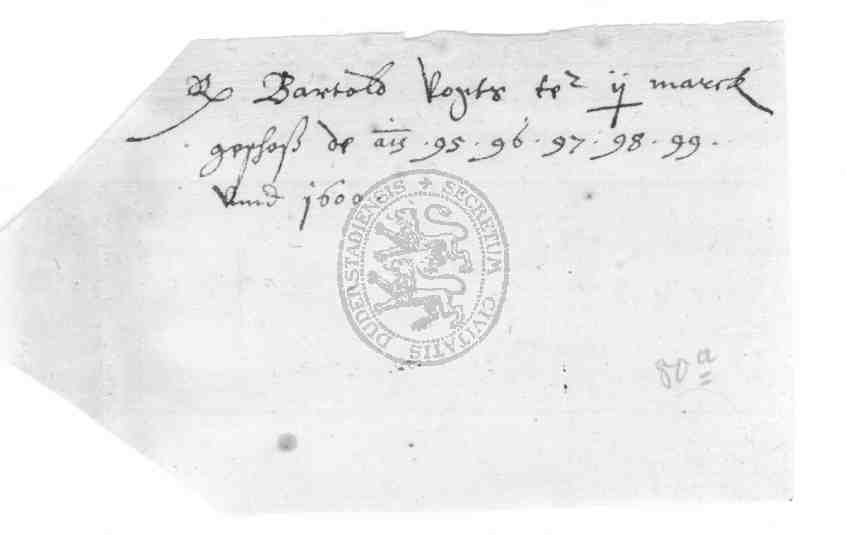 Rx Bartold Vogts te^r ij marck
geschoß de a͞is ·95·96·97·98·99·
Vnnd 1600
SECRETUM CIVITATIS DUDERSTADIENSIS
80 a